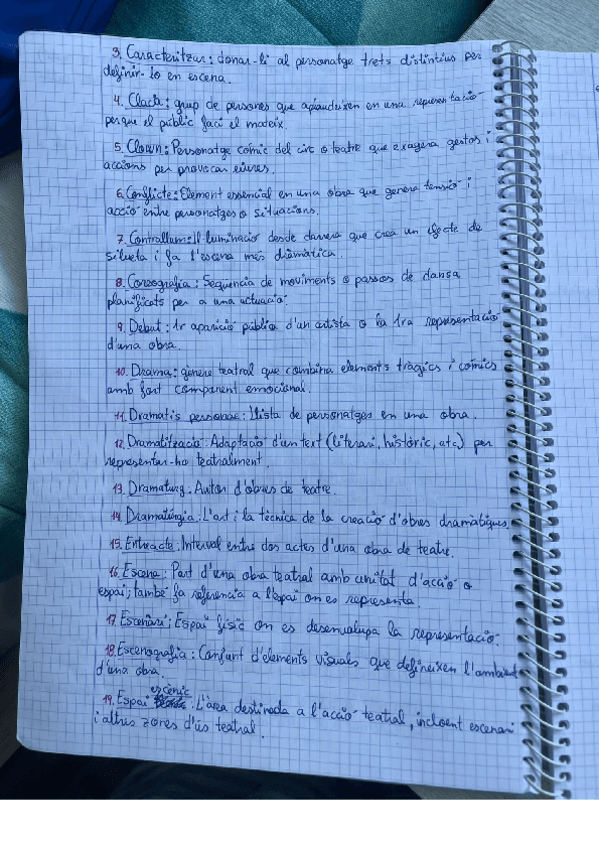 3. Caracteritzar: donar-li al personatge trets distintius per
definir-lo en escena.
4. Clac: grup de persones que aplaudeixen en una representació
perque el públic faci el mateix.
5. Clown: Personatge còmic del circ o teatre que exagera gestos i
accions per provocar riures.
6. Conflicte: Element essencial en una obra que genera tensió i
acció entre personatges o situacions.
7. Contrallum: Il·luminació desde darrera que crea un efecte de
silueta i fa l'escena més dramàtica.
8. Coreografia: Sequencia de moviments o passos de dansa
planificats per a una actuació.
9. Debut: 1r aparició pública d'un artista o la 1ra representació
d'una obra.
10. Drama: genere teatral que combina elements tràgics i còmics
amb fort component emocional.
11. Dramatis personae: llista de personatges en una obra.
12. Dramatització: Adaptació d'un text (literari, històric, etc.) per
representar-ho teatralment.
13. Dramaturg: Autor d'obres de teatre.
14. Dramatúrgia: L'art i la tècnica de la creació d'obres dramàtiques.
15. Entreacte: Interval entre dos actes d'una obra de teatre.
16. Escena: Part d'una obra teatral amb unitat d'acció o
espai; també fa referencia a l'espai on es representa.
17. Escenari: Espai físic on es desenvolupa la representació.
18. Escenografia: Conjunt d'elements visuals que defineixen l'ambient
d'una obra.
19. Espai escènic: L'àrea destinada a l'acció teatral, incloent escenari
i altres zones d'ús teatral.